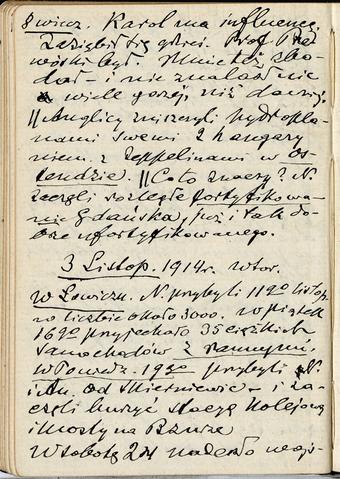 Łowicz. Karol ma influencę.
Zaziębił się wczoraj. Prof. 
był. Mnie też zba-
dał – i nie znalazł nic
wiele gorzej, niż dawniej.
|| Anglicy zniszczyli hydropla-
nami swemi 2 hangary
niem. z Zeppelinami w Os-
tendzie. || Co to znaczy? N.
zaczęli rozległe fortyfikowa-
nie Gdańska, już i tak do-
brze ufortyfikowanego.
3 Listop. 1914 r. wtor.
w Łowiczu. N. przybyli 11go listop.
w liczbie około 3000. w piątek
16go przyjechało 35 ciężkich
samochodów z rannymi.
w Poniedz. 19go przybyli N.
i Au. od Skierniewic – i za-
częli burzyć stację kolejową
i mosty na Bzurze
W sobotę 24 nadeszło wojs-